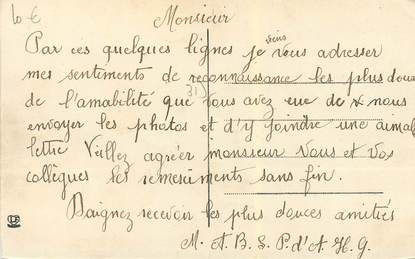 10 €
Monsieur
Par ces quelques lignes je viens vous adresser
mes sentiments de reconnaissance les plus doux
de l'amabilité que vous avez eue de nous
31)
envoyer les photos et d'y joindre une aimab
lettre Vullez agréer monsieur vous et vos
collègues les remerciments sans fin.
Daignez recevoir les plus douces amitiés
M. A. B. S. P. d'A. H. G.